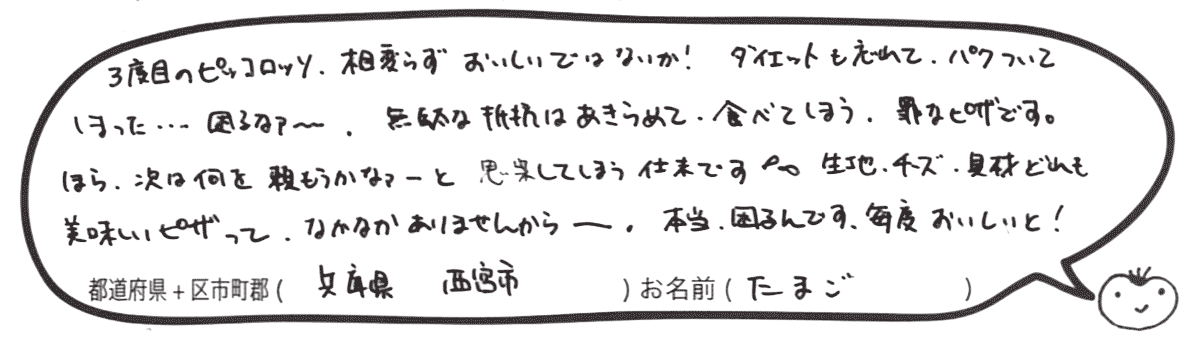 3度目のピッコロッソ、相変らずおいしいではないか！ ダイエットも忘れて、パクついて
しまった… 困るなァ〜。無駄な抵抗はあきらめて、食べてしまう、罪なピザです。
ほら、次は何を頼もうかなァーと思案してしまう仕末です〜 生地、チーズ、具材どれも
美味しいピザって、なかなかありませんから―。本当、困るんです、毎度おいしいと！
都道府県＋区市町郡（ 兵庫県 西宮市 ）お名前（ たまご ）